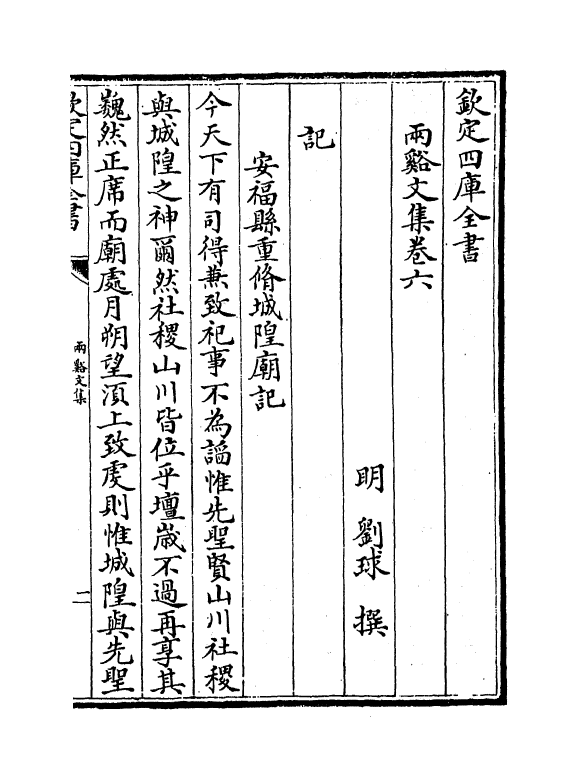 欽定四庫全書
兩谿文集卷六
明 劉球 撰
記
安福縣重脩城隍廟記
今天下有司得兼致祀事不為謟惟先聖賢山川社稷
與城隍之神爾然社稷山川皆位乎壇歲不過再享其
巍然正席而廟處月朔望須上致虔則惟城隍與先聖
欽定四庫全書
兩谿文集
二